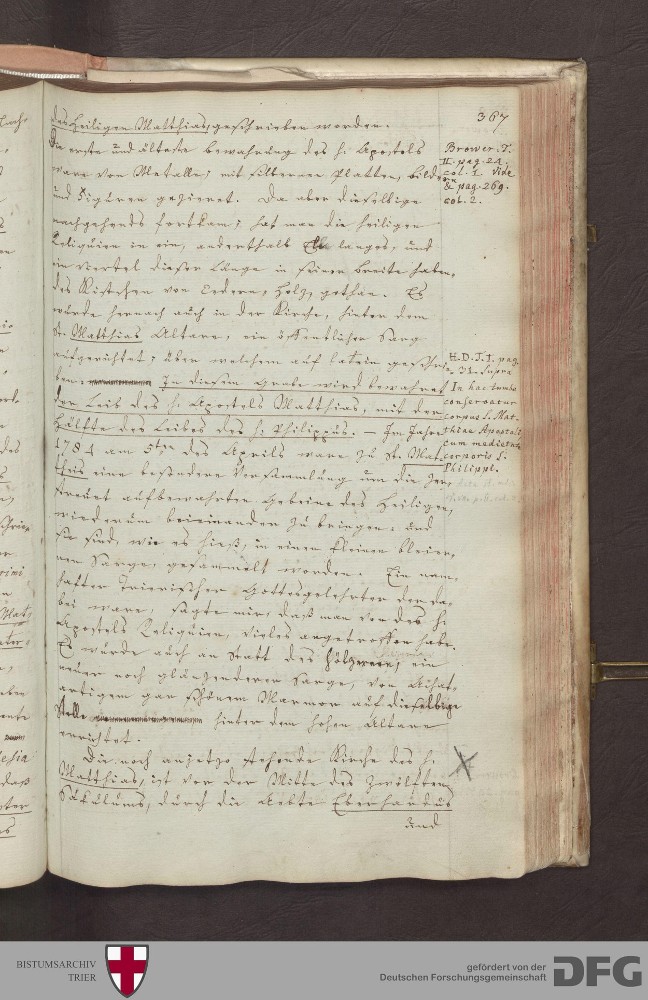 367
des heiligen Matthias, geschrieben worden.
Die erste und älteste bewahrung des h. Apostels
ware von Metalle; mit silbernen Platten, bildern
und Figuren gezieret. Da aber dieselbige
nachgehends fortkam; hat man die heiligen
Reliquien in ein, anderthalb Elle langes, und
ein viertel dieser Länge in seiner breite haben,
des Kistchen von Cedern, Holz, gethan. Es
wurde hernach auch in der Kirche, hinter dem
St. Matthias Altare, ein öffentlicher Sarg
aufgerichtet; über welchem auf latein geschrie,
ben: In diesem Grabe wird bewahret
der Leib des h. Apostels Matthias, mit der
Hälfte des Leibes des h. Philippus. — Im Jahre
1784 am 5ten des Aprils ware zu St. Mat,
theis eine besondere Versammlung um die Zer,
streut aufbewahrten Gebeine des Heiligen,
wiederum beieinander zu bringen: und
sie sind, wie es hieß, in einen kleinen bleier,
nen Sarge, gesammelt worden. Ein nam,
hafter Trierischer Gottesgelehrter der da,
bei ware, sagte mir, daß man von des h.
Apostels Reliquien, vieles angetroffen habe.
Es wurde auch an Statt des hölzernen, ein
neuer noch glänzenderer Sarge, von Achat,
artigem gar schönem Marmor auf dieselbige
Stelle hinter dem hohen Altare
errichtet.
Die noch anjetzo stehende Kirche des h.
Matthias, ist vor der Mitte des Zwölften
Säkulums, durch die Aebte Eberhardus
und
Brower. T.
II. pag. 24.
col. 1. vide
& pag. 269.
col. 2.
H. D. T. 1. pag.
31. Supra
In hac tumba
conservatur
corpus S. Mat,
thiae Apostoli
cum medietate
corporis S.
Philippi.
BISTUMSARCHIV
TRIER
gefördert von der
Deutschen Forschungsgemeinschaft
DFG